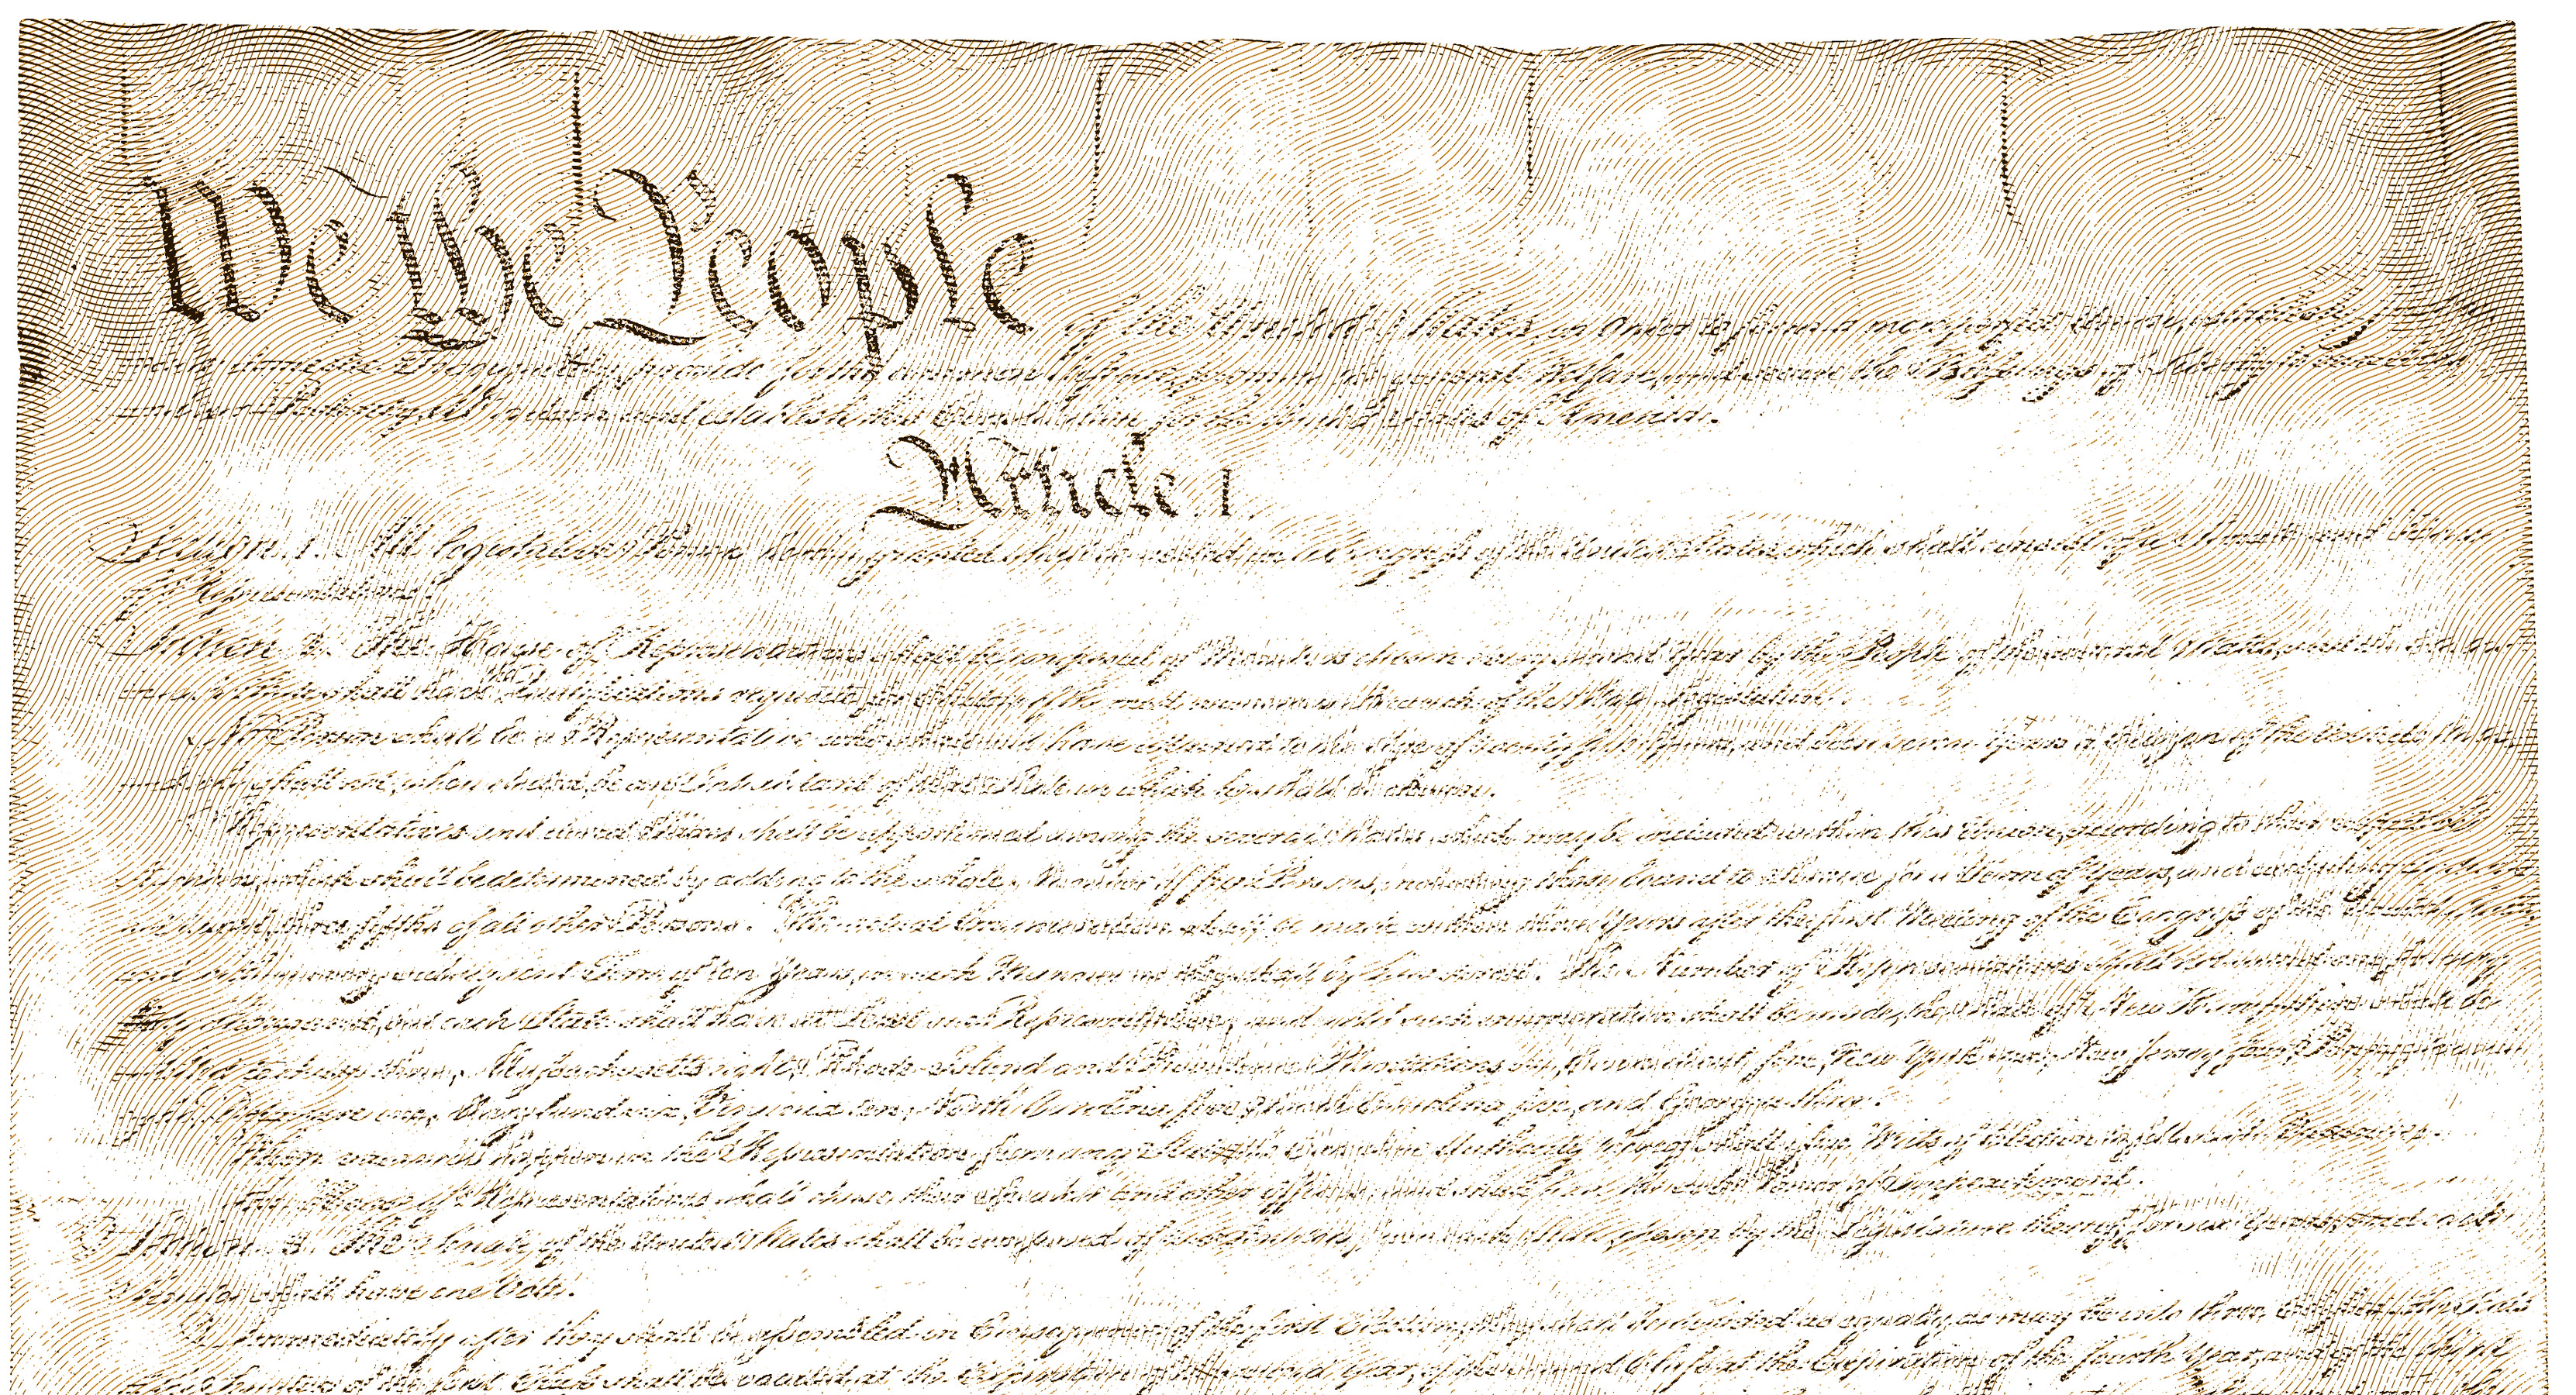 We the People
of the United States, in Order to form a more perfect Union, establish
provide for the common defence, promote the general Welfare, and secure the Blessings of Liberty to ourselves
and our Posterity, do ordain and establish this Constitution for the United States of America.
Article. I.
Section. 1. All legislative Powers herein granted shall be vested in a Congress of the United States, which shall consist of a Senate and House
of Representatives.
Section. 2. The House of Representatives shall be composed of Members chosen every second Year by the People of the several States, and the
shall have the Qualifications requisite for Electors of the most numerous Branch of the State Legislature.
No Person shall be a Representative who shall not have attained to the Age of twenty five Years, and been seven Years a Citizen of the United States,
and who shall not, when elected, be an Inhabitant of that State in which he shall be chosen.
Representatives and direct Taxes shall be apportioned among the several States which may be included within this Union, according to their respective
Numbers, which shall be determined by adding to the whole Number of free Persons, including those bound to Service for a Term of Years, and excluding Indians
not taxed, three fifths of all other Persons. The actual Enumeration shall be made within three Years after the first Meeting of the Congress of the United States,
and within every subsequent Term of ten Years, in such Manner as they shall by Law direct. The Number of Representatives shall not exceed one for every
thirty Thousand, but each State shall have at Least one Representative; and until such enumeration shall be made, the State of New Hampshire shall be
entitled to chuse three, Massachusetts eight, Rhode-Island and Providence Plantations one, Connecticut five, New-York six, New Jersey four, Pennsylvania
eight, Delaware one, Maryland six, Virginia ten, North Carolina five, South Carolina five, and Georgia three.
When vacancies happen in the Representation from any State, the Executive Authority thereof shall issue Writs of Election to fill such Vacancies.
The House of Representatives shall chuse their Speaker and other Officers; and shall have the sole Power of Impeachment.
Section. 3. The Senate of the United States shall be composed of two Senators from each State, chosen by the Legislature thereof, for six Years; and each
Senator shall have one Vote.
Immediately after they shall be assembled in Consequence of the first Election, they shall be divided as equally as may be into three Classes. The Seats
of the Senators of the first Class shall be vacated at the Expiration of the second Year, of the second Class at the Expiration of the fourth Year, and of the third